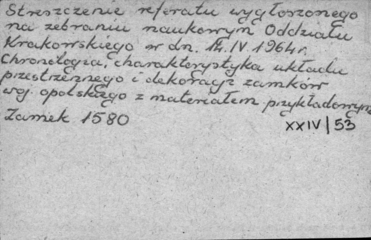 Streszczenie referatu wygłoszonego
na zebraniu naukowym Oddziału
Krakowskiego w dn. 14.IV 1964r.
Chronologia, charakterystyka układu
przestrzennego i dekoracje zamków
woj. opolskiego z materiałem przykładowym
Zamek 1580
XXIV/53